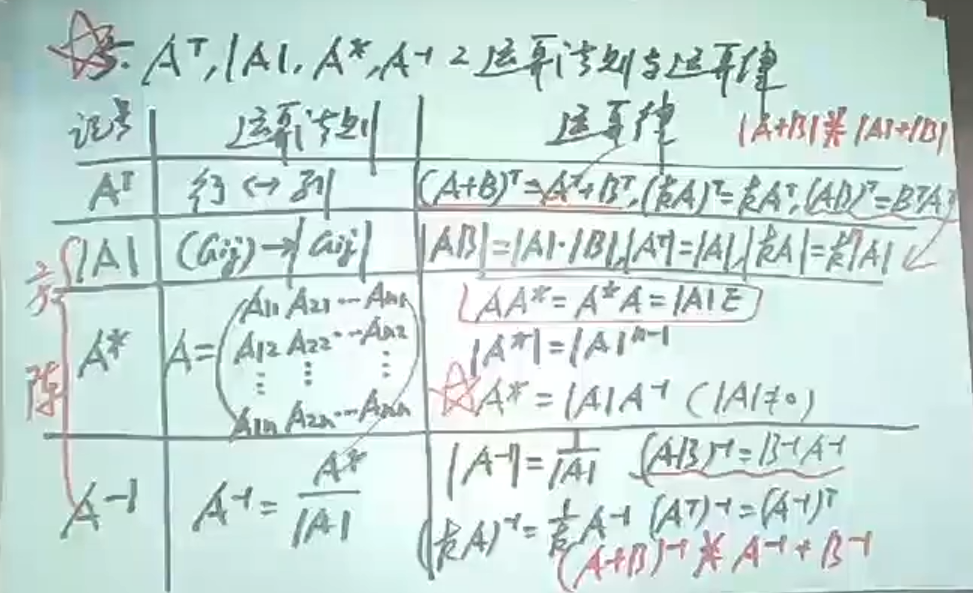 ☆ 5. Aᵀ, |A|, A*, A⁻¹ 之运算法则与运算律
记号 运算法则 运算律 |A+B| ≠ |A|+|B|
Aᵀ 行 ↔ 列 (A+B)ᵀ = Aᵀ+Bᵀ, (kA)ᵀ = kAᵀ, (AB)ᵀ = BᵀAᵀ
方阵
|A| (aij) → |aij| |AB| = |A|·|B|, |Aᵀ| = |A|, |kA| = kⁿ|A|
A* A = (A₁₁ A₂₁ ⋯ Aₙ₁
A₁₂ A₂₂ ⋯ Aₙ₂
⋮ ⋮ ⋮
A₁ₙ A₂ₙ ⋯ Aₙₙ)
AA* = A*A = |A|E
|A*| = |A|ⁿ⁻¹
☆ A* = |A|A⁻¹ (|A|≠0)
A⁻¹ A⁻¹ = A*/|A| |A⁻¹| = 1/|A| (AB)⁻¹ = B⁻¹A⁻¹
(kA)⁻¹ = 1/k A⁻¹ (Aᵀ)⁻¹ = (A⁻¹)ᵀ
(A+B)⁻¹ ≠ A⁻¹ + B⁻¹